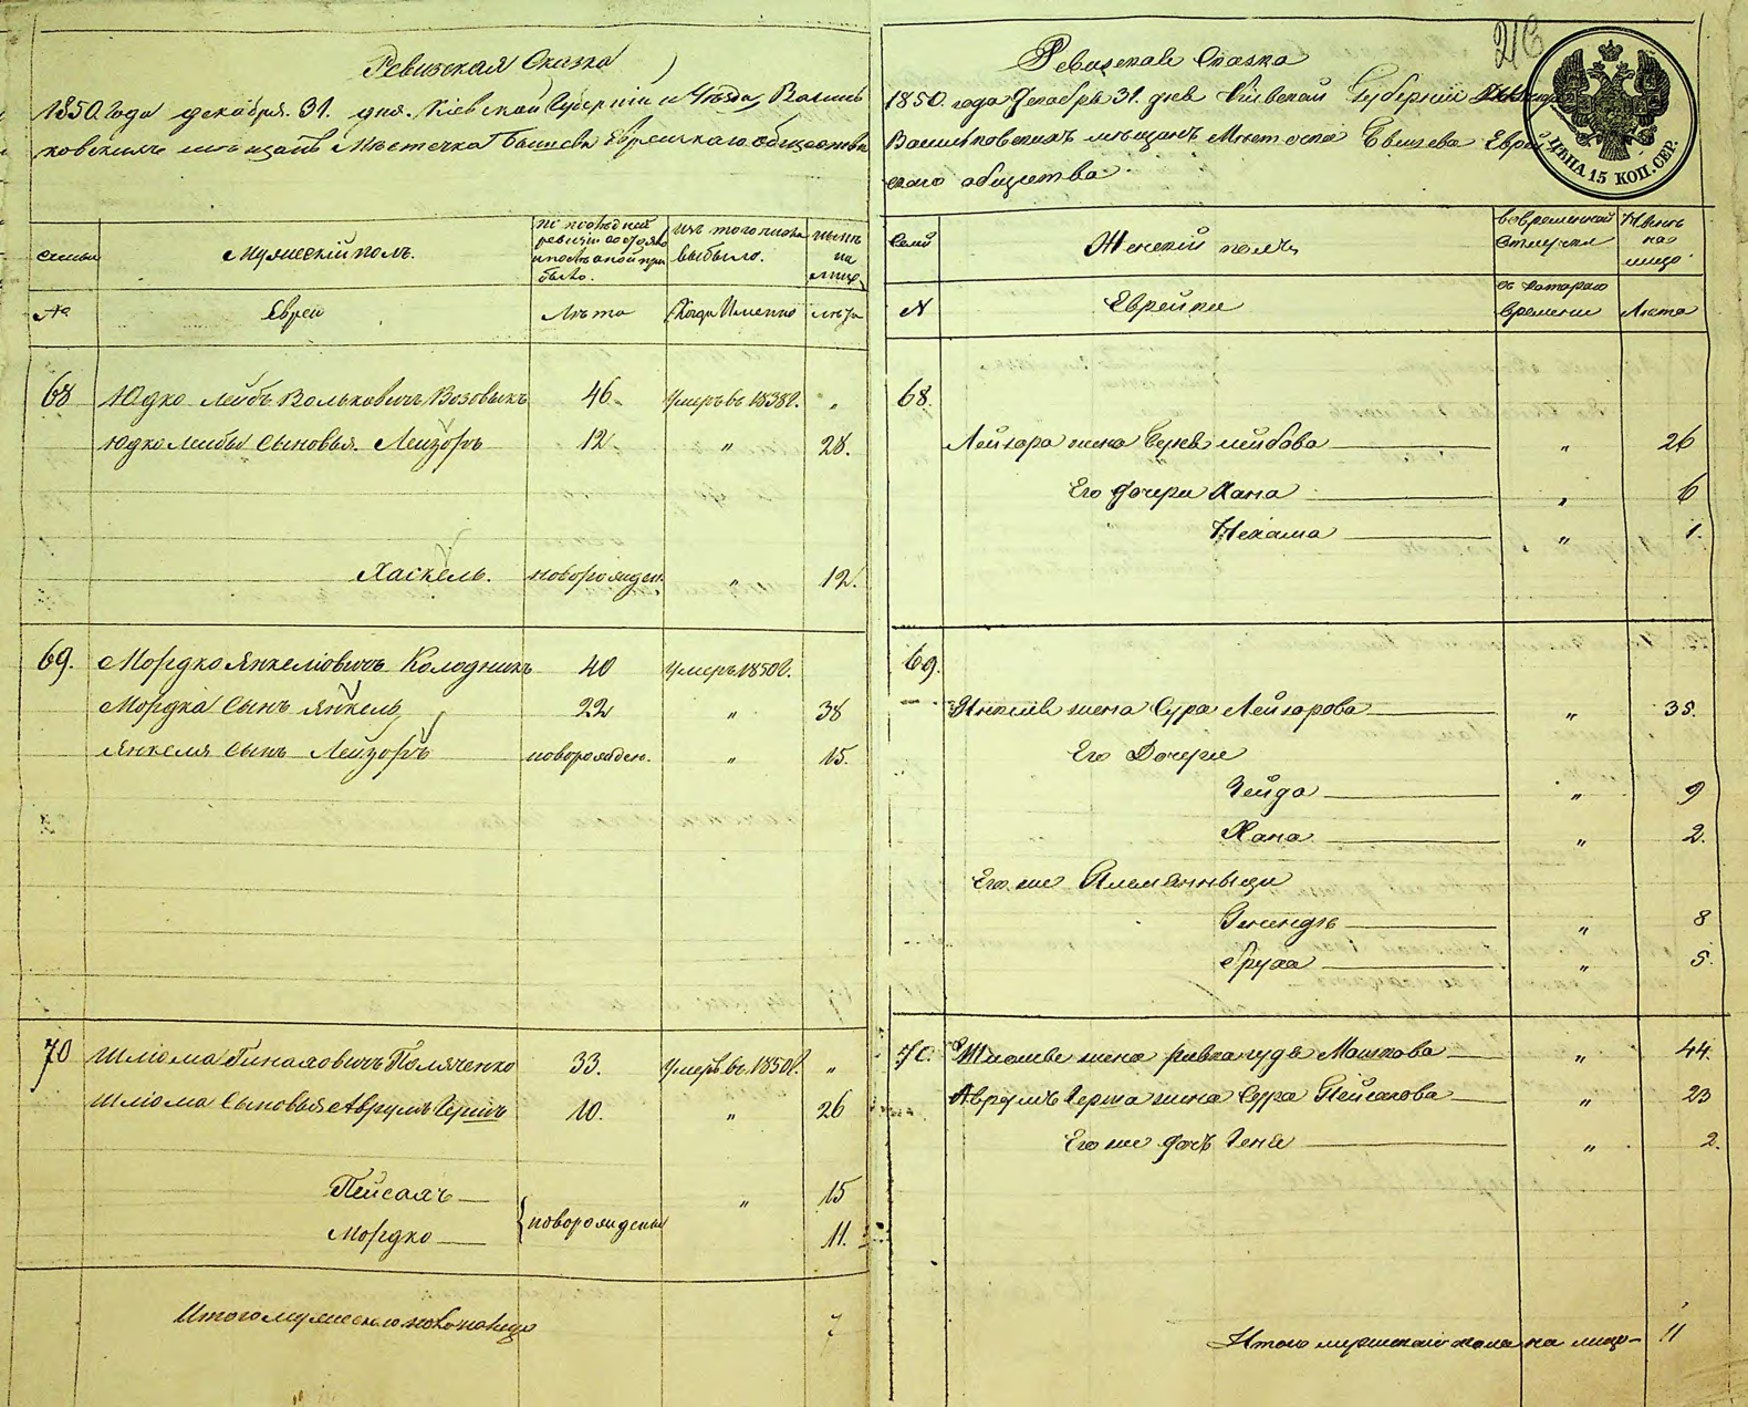 Ревизская Сказка
1850 Года декабря 31. дня. Кіевской Губерніи и Уѣзда, Василь
ковскихъ мѣщанъ Мѣстечка Еврейскаго общества
семьи
Мужескій полъ.
по послѣдней ревизіи состояло и послѣ оной прибыло.
изъ того числа выбыло.
нынѣ на лицо
№
Евреи
Лѣта
Когда Именно
лѣта
68 Юдко Лейбъ Вольковичъ 46 Умеръ въ 1838 г. "
Юдко Лейбы Сыновья. Лейзоръ 12 " 28.
Хаскель. новорожден. " 12.
69. Мордко Янкеліовичъ Колодникъ 40 Умеръ 1850 г.
Мордка Сынъ Янкель 22 " 38
Янкеля Сынъ Лейзоръ новорожден. " 15.
70 Шліома Пинхасовичъ Поляченко 33. Умеръ въ 1850 г. "
Шліома Сыновья Аврумъ Гершъ 10. " 26
Пейсахъ " 15
новорожденны
Мордко 11.
Итого мужескаго пола на лицо 7
216
Ревизская Сказка
1850. года Декабря 31. дня Кіевской Губерніи
Васильковскихъ мѣщанъ Мѣстечка Еврей
скаго общества.
ЦѢНА 15 КОП. СЕР.
Семьи
Женскій полъ
во временной отлучкѣ
Нынѣ на лицо
N
Еврейки
съ котораго времени
Лѣта
68.
Лейзора жена Лейбова " 26
Его дочери Хана " 6
Нехама " 1.
69.
Янкеля жена Сура Лейзорова " 35.
Его Дочери
Гейда " 9
Хана " 2.
Его же Племянныци
" 8
Бруха " 5.
70. Шліомы жена Ривка Мошкова " 44.
Аврумъ Герша жена Сура Пейсахова " 23
Его же дочь Геня " 2.
Итого пола на лицо 11